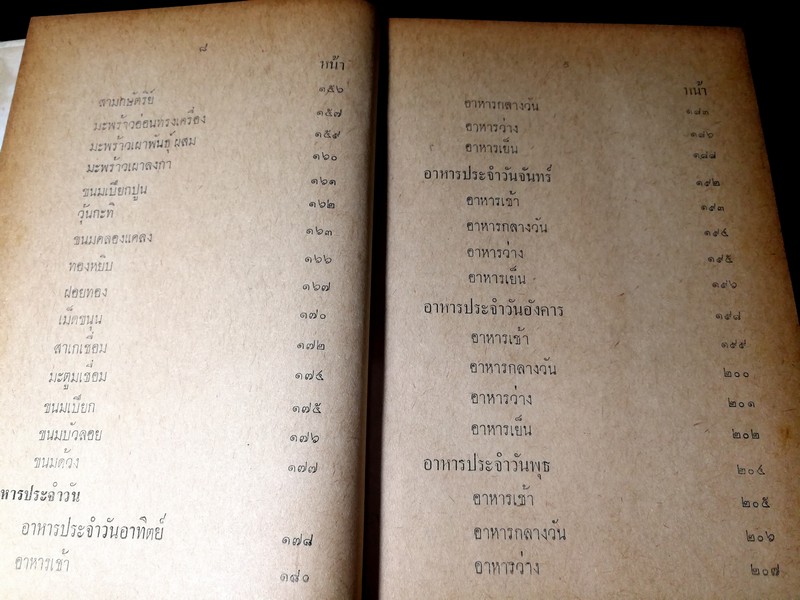 ๘
หน้า
สามกษัตริย์ ๑๕๖
มะพร้าวอ่อนทรงเครื่อง ๑๕๗
มะพร้าวเผาพันธุ์ผสม ๑๕๙
มะพร้าวเผาลงกา ๑๖๐
ขนมเปียกปูน ๑๖๑
วุ้นกะทิ ๑๖๒
ขนมคลองแคลง ๑๖๓
ทองหยิบ ๑๖๖
ฝอยทอง ๑๖๗
เม็ดขนุน ๑๗๐
สาเกเชื่อม ๑๗๒
มะตูมเชื่อม ๑๗๔
ขนมเปียก ๑๗๕
ขนมบัวลอย ๑๗๖
ขนมด้วง ๑๗๗
หารประจำวัน
อาหารประจำวันอาทิตย์ ๑๗๘
อาหารเช้า ๑๘๐
หน้า
อาหารกลางวัน ๑๘๓
อาหารว่าง ๑๘๖
อาหารเย็น ๑๘๘
อาหารประจำวันจันทร์ ๑๙๒
อาหารเช้า ๑๙๓
อาหารกลางวัน ๑๙๔
อาหารว่าง ๑๙๕
อาหารเย็น ๑๙๖
อาหารประจำวันอังคาร ๑๙๘
อาหารเช้า ๑๙๙
อาหารกลางวัน ๒๐๐
อาหารว่าง ๒๐๑
อาหารเย็น ๒๐๒
อาหารประจำวันพุธ ๒๐๔
อาหารเช้า ๒๐๕
อาหารกลางวัน ๒๐๖
อาหารว่าง ๒๐๗